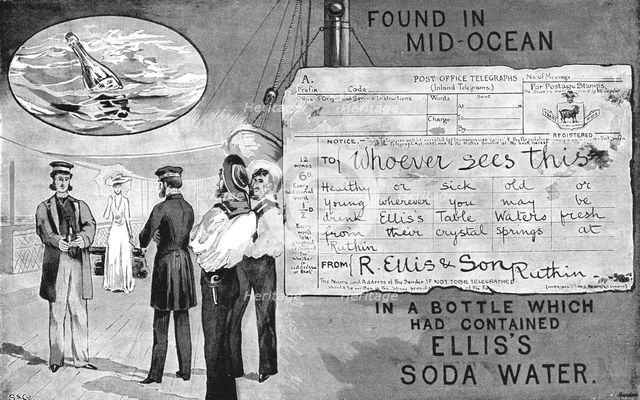 FOUND IN
MID-OCEAN
A.
POST OFFICE TELEGRAPHS
No. of Message
Prefix Code
(Inland Telegrams.)
For Postage Stamps.
Office of Origin and Service Instructions
Words
Sent
At
Charge
By
REGISTERED
NOTICE.
12
6D.
Every
1/2 D.
TO Whoever sees this
Healthy or sick old or
young wherever you may be
drink Ellis's Table Waters fresh
from their crystal springs at
Ruthin
FROM R. Ellis & Son Ruthin
The Name and Address of the Sender IF NOT TO BE TELEGRAPHED
IN A BOTTLE WHICH
HAD CONTAINED
ELLIS'S
SODA WATER.
Heritage
Heritage
Heritage
Heritage